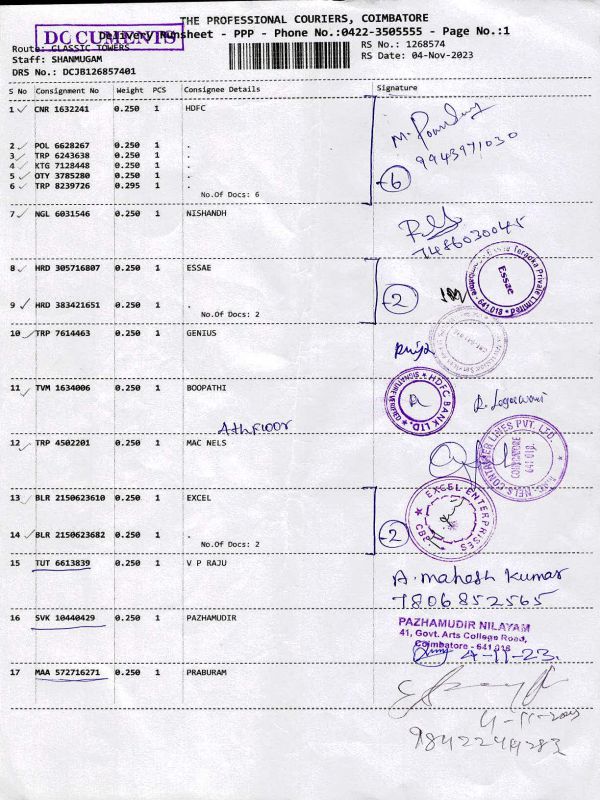 THE PROFESSIONAL COURIERS, COIMBATORE
DOCUMENTS
Delivery Runsheet - PPP - Phone No.:0422-3505555 - Page No.:1
Route: CLASSIC TOWERS
RS No.: 1268574
Staff: SHANMUGAM
RS Date: 04-Nov-2023
DRS No.: DCJB126857401
S No Consignment No Weight PCS Consignee Details Signature
1 CNR 1632241 0.250 1 HDFC
9943971030
2 POL 6628267 0.250 1 .
3 TRP 6243638 0.250 1 .
4 KTG 7128448 0.250 1 .
5 OTY 3785280 0.250 1 .
6 TRP 8239726 0.295 1 .
-6
No.Of Docs: 6
7 NGL 6031546 0.250 1 NISHANDH
7486030045
8 HRD 305716807 0.250 1 ESSAE
Essae
Teraoka Private Limited
641 018
-2
9 HRD 383421651 0.250 1 .
No.Of Docs: 2
10 TRP 7614463 0.250 1 GENIUS
11 TVM 1634006 0.250 1 BOOPATHI
HDFC BANK LTD.
SIGNATURE VERIFIED
R. Logeswari
12 TRP 4502201 0.250 1 MAC NELS
MAC NELS CONTAINER LINES PVT. LTD.
COIMBATORE
641 018
13 BLR 2150623610 0.250 1 EXCEL
EXCEL ENTERPRISES
CBE
-2
14 BLR 2150623682 0.250 1 .
No.Of Docs: 2
15 TUT 6613839 0.250 1 V P RAJU
A. Mahesh Kumar
7806852565
16 SVK 10440429 0.250 1 PAZHAMUDIR
PAZHAMUDIR NILAYAM
41, Govt. Arts College Road,
Coimbatore - 641 018
4-11-23.
17 MAA 572716271 0.250 1 PRABURAM
4-11-2023